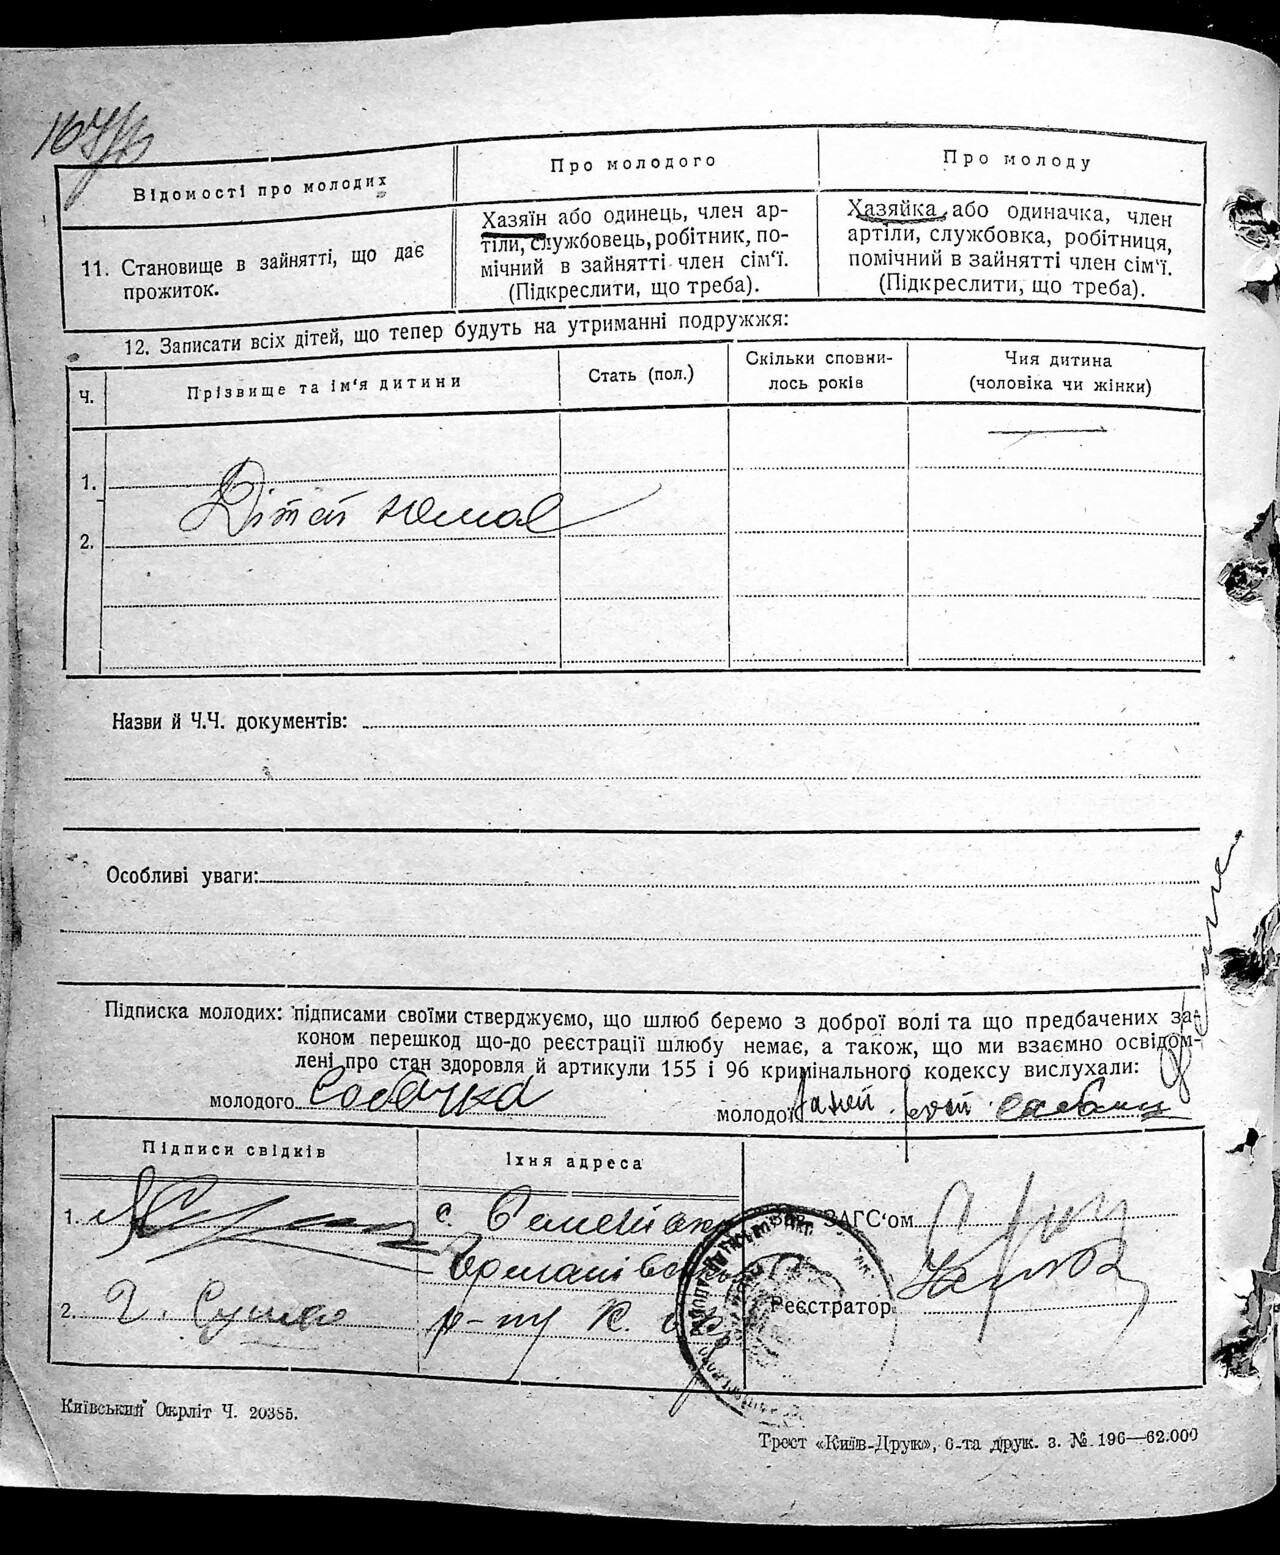 Відомості про молодих
Про молодого
Про молоду
11. Становище в зайнятті, що дає
прожиток.
Хазяїн або одинець, член ар-
тіли, службовець, робітник, по-
мічний в зайнятті член сім'ї.
(Підкреслити, що треба).
Хазяйка або одиначка, член
артіли, службовка, робітниця,
помічний в зайнятті член сім'ї.
(Підкреслити, що треба).
12. Записати всіх дітей, що тепер будуть на утриманні подружжя:
Ч.
Прізвище та ім'я дитини
Стать (пол.)
Скільки сповни-
лось років
Чия дитина
(чоловіка чи жінки)
1.
Дітей немає
2.
Назви й Ч.Ч. документів:
Особливі уваги:
Підписка молодих: підписами своїми стверджуємо, що шлюб беремо з доброї волі та що предбачених за-
коном перешкод що-до реєстрації шлюбу немає, а також, що ми взаємно освідом-
лені про стан здоровля й артикули 155 і 96 кримінального кодексу вислухали:
молодого Собачка
молодої
Підписи свідків
Їхня адреса
1.
с.
Зав. ЗАГС'ом
Реєстратор
2.
р-ну К.
Київський Окрліт Ч. 20385.
Трест «Київ-Друк», 6-та друк. з. № 196—62.000